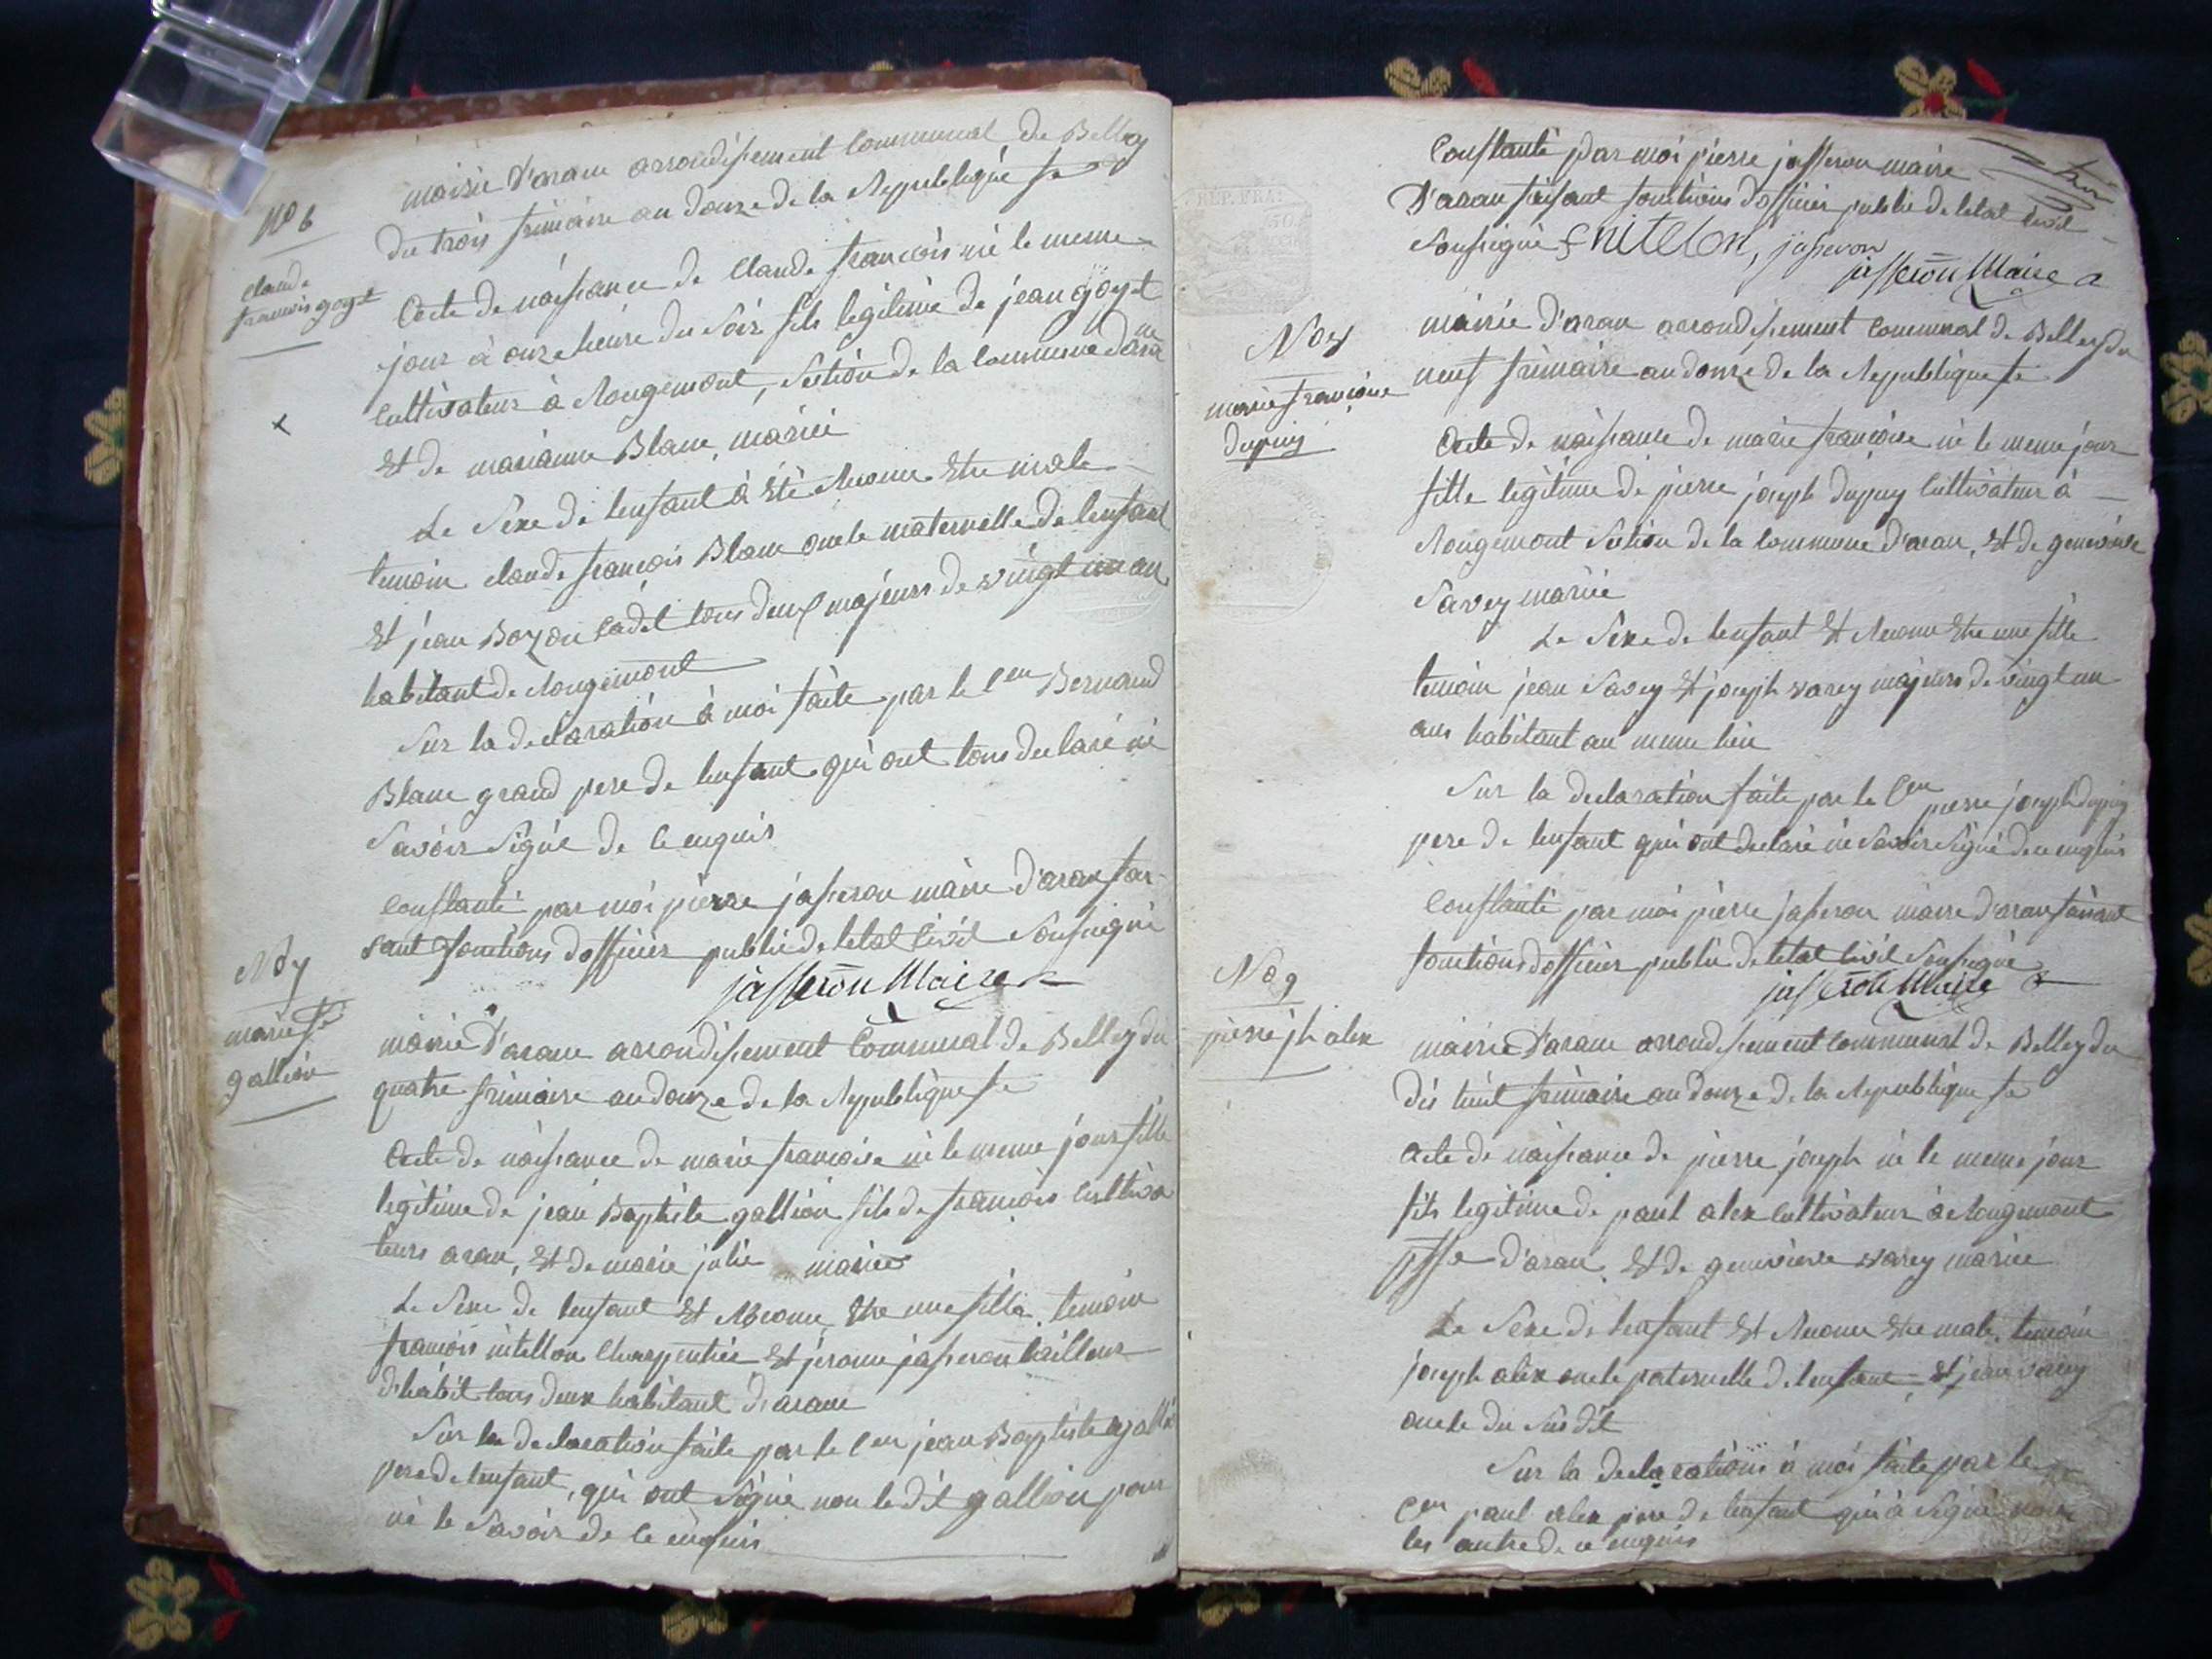 No 6
claude
francois goyt
mairie d'aranc arrondissement communal de Belley
du trois frimaire an douze de la Republique fse
Acte de naissance de claude francois né le meme
jour à onze heure du soir fils legitime de jean goyt
cultivateur à Rougemont, section de la commune daranc
Et de marianne Blanc, marié
Le sexe de lenfant à été reconnu Etre male
temoin claude francois Blanc oncle maternelle de lenfant
Et jean Bozon cadet tous deux majeurs de vingt un an
habitant de Rougemont
Sur la declaration à moi faite par le Cen Bernard
Blanc grand pere de lenfant qui ont tous declaré né
savoir signé de ce enquis
Constanté par moi pierre jasseron maire d'aran fai-
sant fonctions dofficier public de letat civil soussigné
jasseron Maire
No 7
marie fse
gallion
mairie d'aranc arrondissement Communal de Belley du
quatre frimaire an douze de la Republique fse
Acte de naissance de marie francoise né le meme jour fille
legitime de jean Baptiste gallion fils de francois cultiva
teurs aran, Et de marie julie mariés
Le sexe de lenfant Et Reconnu Etre une fille, temoin
francois nitellon Charpentier Et jerome jasseron tailleur
d'habit tous deux habitant daranc
Sur la declaration faite par le Cen jean Baptiste galli
pere de lenfant, qui ont signé non le dit gallion pour
né le savoir de ce enquis
Constanté par moi pierre jasseron maire
D'aran faisant fonctions dofficier public de letat civil
soussigné f nitelon, jasseron
jasseron Maire
REP. FRA.
No 8
marie francoise
dupuy
mairie d'aran arrondissement communal de Belley du
neuf frimaire an douze de la Republique fse
Acte de naissance de marie francoise né le meme jour
fille legitime de pierre joseph dupuy cultivateur à
Rougemont section de la commune d'aran, Et de genevieve
Savey marié
Le sexe de lenfant Et Reconnu Etre une fille
temoin jean Savey Et joseph varey majeurs de vingt un
ans habitant au meme lieu
Sur la declaration faite par le Cen pierre joseph dupuy
pere de lenfant qui ont declaré né savoir signé de ce enquis
Constanté par moi pierre jasseron maire d'aran faisant
fonctions dofficier public de letat civil soussigné
jasseron Maire
No 9
pierre jh alex
mairie d'aranc arrondissement communal de Belley du
dis huit frimaire an douze de la Republique fse
Acte de naissance de pierre joseph né le meme jour
fils legitime de paul alex cultivateur à Rougemont
d'aran, Et de genevieve varey marié
Le sexe de lenfant Et Reconnu Etre male, temoin
joseph alex oncle paternelle de lenfant, Et jean varey
oncle du susdit
Sur la declarations à moi faite par le
Cen paul alex pere de lenfant qui à signé non
les autre de ce enquis